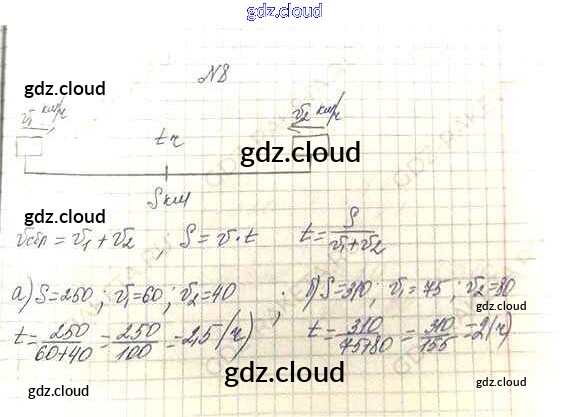 gdz.cloud
№8
gdz.cloud
v₁ км/ч v₂ км/ч
t ч
gdz.cloud
S км
gdz.cloud
vсбл = v₁ + v₂ ; S = v·t t = S/(v₁+v₂)
а) S=250; v₁=60; v₂=40 ; б) S=310; v₁=75; v₂=80
gdz.cloud
t = 250/(60+40) = 250/100 = 2,5 (ч) t = 310/(75+80) = 310/155 = 2 (ч)
gdz.cloud
gdz.cloud
gdz.cloud